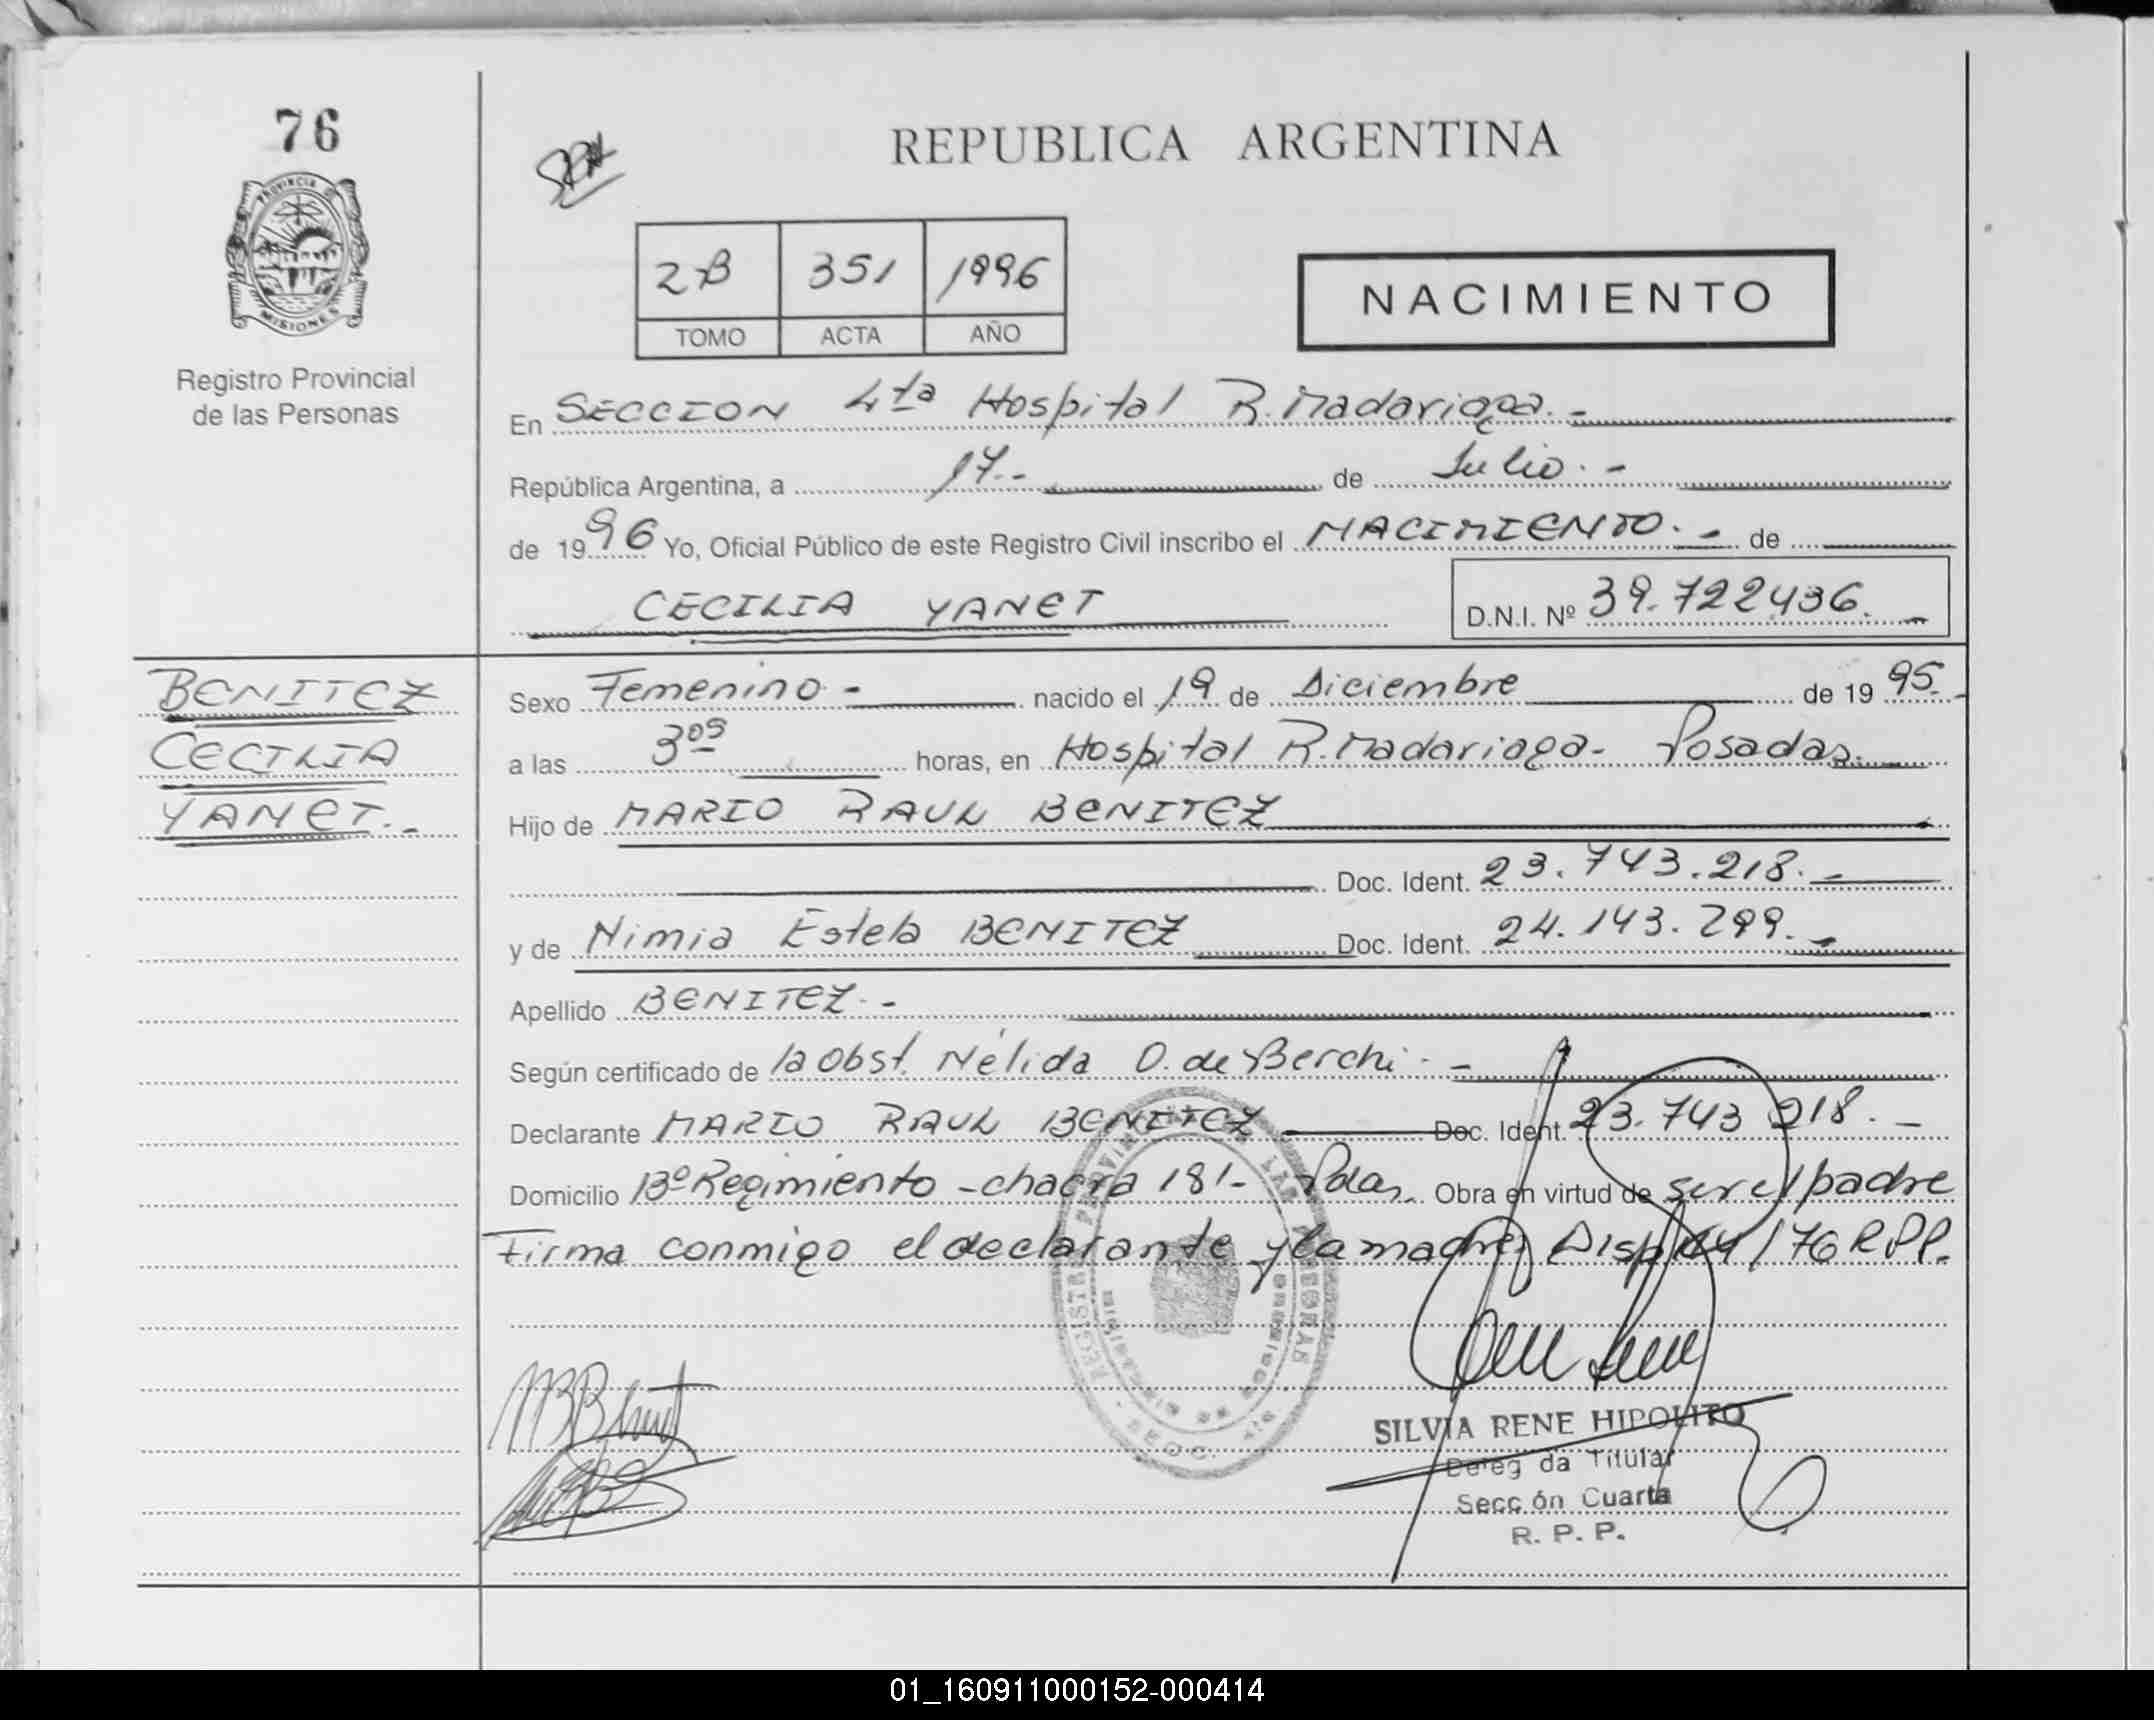 76
REPUBLICA ARGENTINA
PROVINCIA D
MISIONES
Registro Provincial
de las Personas
2B 351 1996
TOMO ACTA AÑO
NACIMIENTO
En SECCION 4ta Hospital R. Madariaga. -
República Argentina, a 17.- de Julio. -
de 1996 Yo, Oficial Público de este Registro Civil inscribo el NACIMIENTO. - de
CECILIA YANET D.N.I. Nº 39.722436. -
BENITEZ
CECILIA
YANET. -
Sexo Femenino - nacido el 19 de Diciembre de 1995.-
a las 3 05 horas, en Hospital R. Madariaga - Posadas.
Hijo de MARIO RAUL BENITEZ
Doc. Ident. 23.743.218. -
y de Nimia Estela BENITEZ Doc. Ident. 24.143.299. -
Apellido BENITEZ. -
Según certificado de la Obst. Nélida O. de Berchi. -
Declarante MARIO RAUL BENITEZ Doc. Ident. 23.743 218. -
Domicilio Bº Regimiento - chacra 181- Pdas. Obra en virtud de ser el padre
Firma conmigo el declarante y la madre, Disp /76 RPP.
SILVIA RENE HIPOLITO
Deleg da Titular
Secc ón Cuarta
R. P. P.
01_160911000152-000414